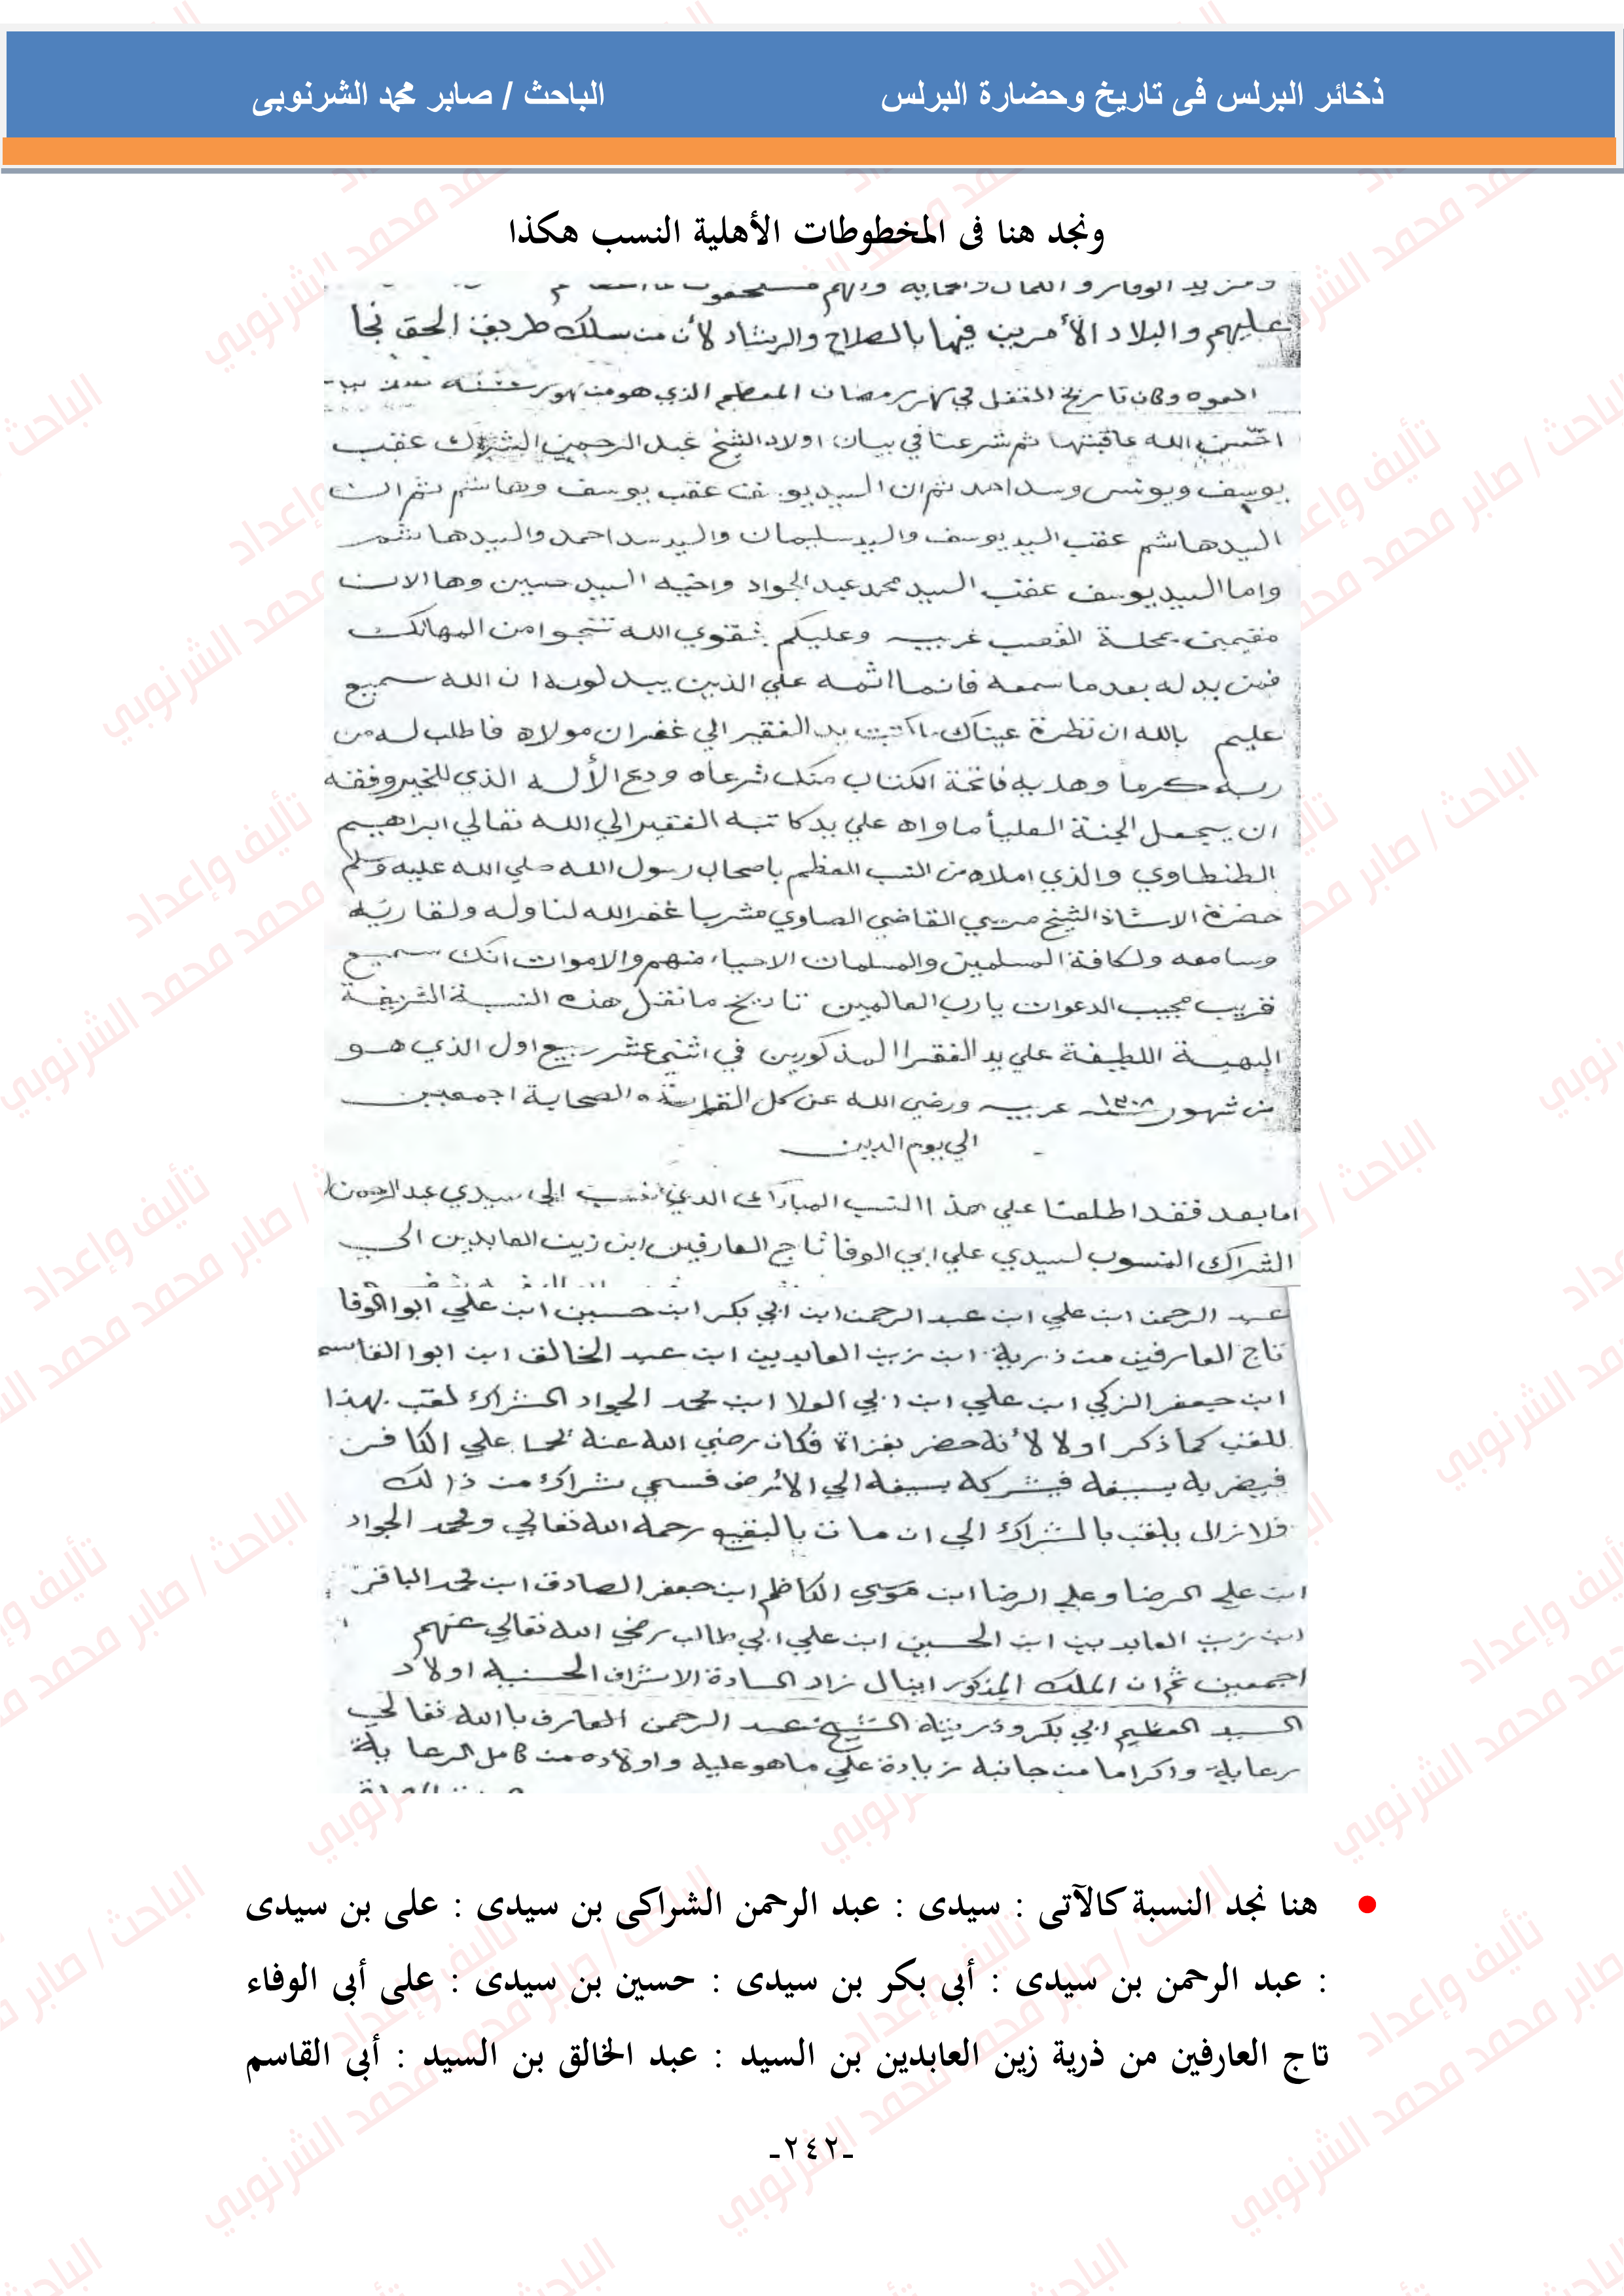 ذخائر البرلس فى تاريخ وحضارة البرلس
الباحث / صابر محمد الشرنوبى
ونجد هنا فى المخطوطات الأهلية النسب هكذا
عليهم والبلاد الأمرين فيها بالصلاح والرشاد لأن من سلك طريق الحق نجا
وكان تاريخ النقل في شهر رمضان المعظم الذي هو من شهور سنة
الله عاقبتها ثم شرعنا في بيان اولاد الشيخ عبد الرحمن الشراك عقب
يوسف ويونس وسد احمد ثم ان السيد يوسف عقب يوسف وهاشم ثم ان
السيد هاشم عقب السيد يوسف والسيد سليمان والسيد سد احمد والسيد هاشم
واما السيد يوسف عقب السيد محمد عبد الجواد واخيه السيد حسين وها الان
مقيمين بمحلة القصب غربيه وعليكم بتقوي الله تنجوا من المهالك
فمن بدله بعد ما سمعه فانما اثمه علي الذين يبدلونه ان الله سميع
عليم بالله ان نظرة عيناك ما كتبت يد الفقير الي غفران مولاه فاطلب له من
ربه كرما وهديه فاتحة الكتاب منك شرعاه ودع الأله الذي للخير وفقه
ان يجعل الجنة العليأ ماواه علي يد كاتبه الفقير الي الله تعالي ابراهيم
الطنطاوي والذي املاه من النسب المعظم باصحاب رسول الله صلي الله عليه وسلم
حضرة الاستاذ الشيخ مرسي القاضي الصاوي مشربا غفر الله لنا وله ولقاريه
وسامعه ولكافة المسلمين والمسلمات الاحياء منهم والاموات انك سميع
قريب مجيب الدعوات يارب العالمين تاريخ ما نقل هذه النسبة الشريفة
البهية اللطيفة علي يد الفقرا المذكورين في اثني عشر ربيع اول الذي هو
من شهور سنة ١٣٠٨ عربيه ورضي الله عن كل القرابة والصحابة اجمعين
الي يوم الدين
اما بعد فقد اطلعنا علي هذا النسب المبارك الذي نسب الي سيدي عبد الرحمن
الشراك المنسوب لسيدي علي ابي الوفا تاج العارفين ابن زين العابدين الي
عبد الرحمن ابن علي ابن عبد الرحمن ابن ابي بكر ابن حسين ابن علي ابوا الوفا
تاج العارفين من ذرية ابن زين العابدين ابن عبد الخالق ابن ابوا القاسم
ابن جعفر الزكي ابن علي ابن ابي العلا ابن محمد الجواد الشراك لقب بهذا
للقب كما ذكر اولا لأنه حضر بغزاة فكان رضي الله عنه علي الكافر
فيضربه بسيفه فيشركه بسيفه الي الأرض فسمي شراك من ذالك
فلا زال يلقب بالشراك الي ان مات بالبقيع رحمه الله تعالي ومحمد الجواد
ابن علي الرضا وعلي الرضا ابن موسي الكاظم ابن جعفر الصادق ابن محمد الباقر
ابن زين العابدين ابن الحسين ابن علي ابي طالب رضي الله تعالي عنهم
اجمعين ثم ان الملك المذكور اينال زاد السادة الاشراف الحسنية اولاد
السيد العظيم ابي بكر وذريته الشيخ عبد الرحمن العارف باالله تعالي
رعاية واكراما من جانبه زيادة علي ماهو عليه واولاده من كامل الرعاية
• هنا نجد النسبة كالآتى : سيدى : عبد الرحمن الشراكى بن سيدى : على بن سيدى
: عبد الرحمن بن سيدى : أبى بكر بن سيدى : حسين بن سيدى : على أبى الوفاء
تاج العارفين من ذرية زين العابدين بن السيد : عبد الخالق بن السيد : أبى القاسم
-٢٤٢-